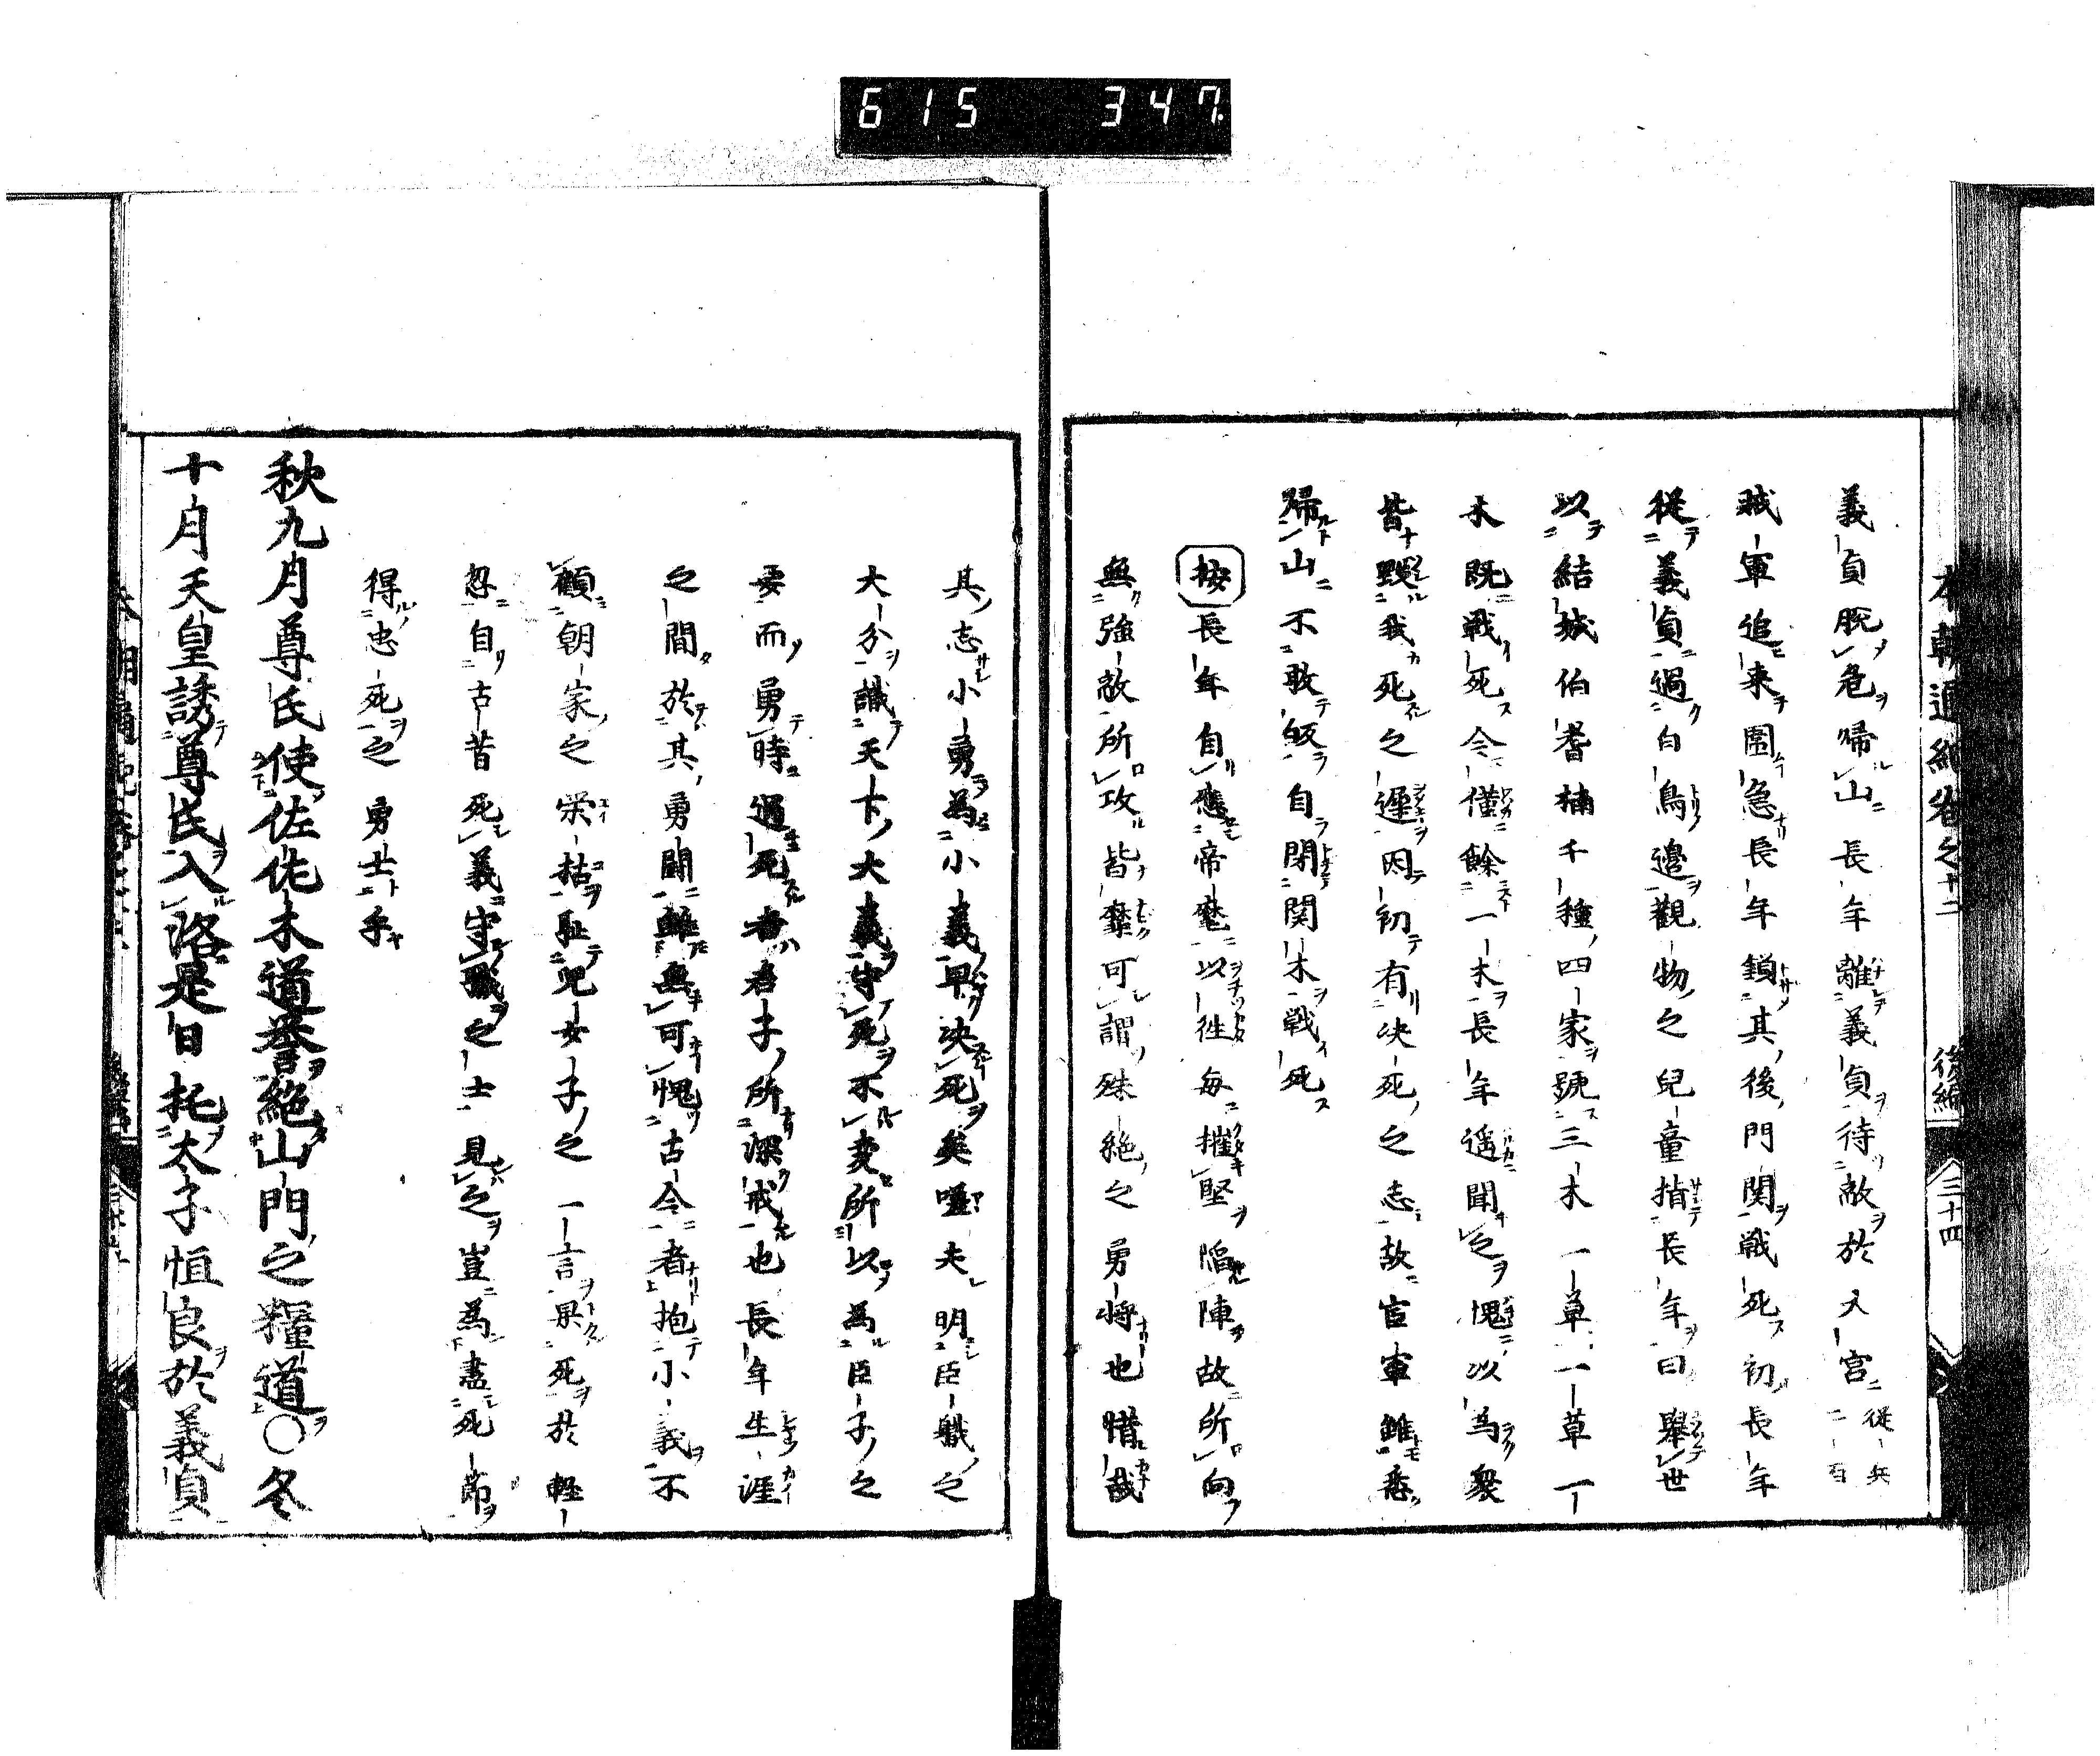 615 347
本朝通紀卷之十二 後編 三十四
義貞脫危歸山長年離義貞待敵於大宮從兵二百
賊軍追来圍急長年鎖其後門関戦死初長年
從義貞過白鳥邊觀物之兒童指長年曰舉世
以結城伯耆楠千種四家號三木一草一草一
木既戦死今僅餘一木長年遥聞之愧以為衆
皆嘆我死之遲因初有决死之志故官軍雖悉
歸山不敢皈自閉関木戦死
按長年自應帝麾以徃毎摧堅陷陣故所向
無強敵所攻皆靡可謂殊絶之勇将也惜哉
其志小勇為小義早决死矣噫夫明臣職之
大分識天下大義守死不変所以為臣子之
要而勇時過死者君子所深戒也長年生涯
之間於其勇闘雖無可愧古今者抱小義不
顧朝家之栄枯恥兒女子之一言果死於軽
忽自古昔死義守職之士見之豈為盡死節
得忠死之勇士乎
秋九月尊氏使佐佐木道誉絶山門之糧道○冬
十月天皇誘尊氏入洛是日托太子恒良於義貞